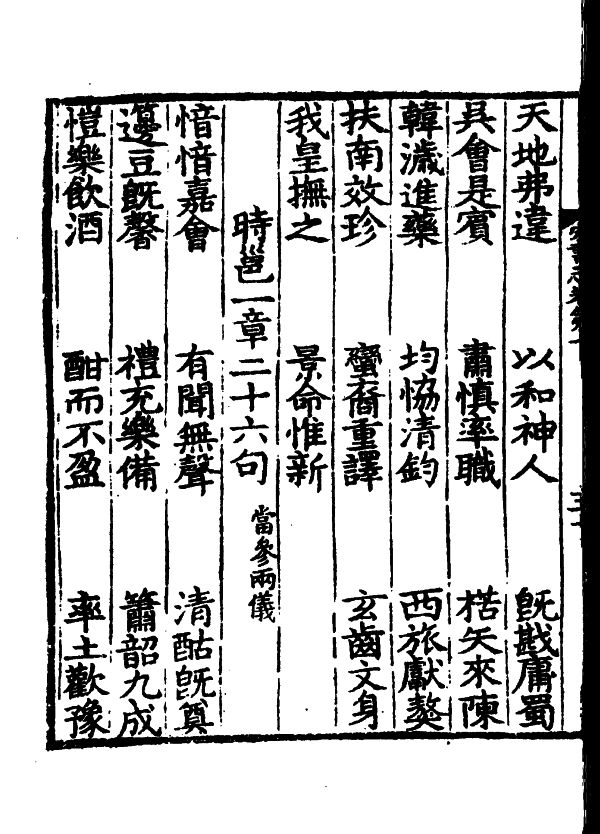 天地弗違　以和神人　旣戡庸蜀
吴會是賓　肅慎率職　楛矢來陳
韓濊進藥　均協清鈞　西旅獻獒
扶南效珍　蠻裔重譯　玄齒文身
我皇撫之　景命惟新
時邕一章二十六句　當參兩儀
愔愔嘉會　有聞無聲　清酤旣奠
籩豆旣馨　禮充樂備　簫韶九成
愷樂飲酒　酣而不盈　率土歡豫